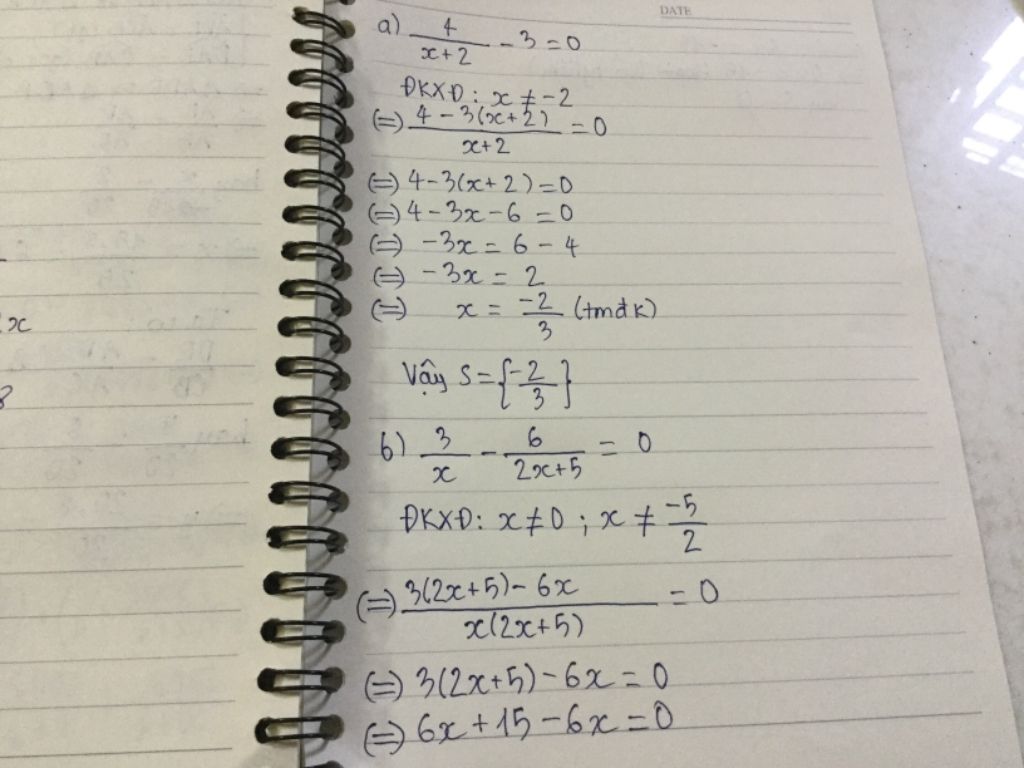 DATE
a) 4/(x+2) - 3 = 0
ĐKXĐ: x ≠ -2
(=) (4 - 3(x+2))/(x+2) = 0
(=) 4 - 3(x+2) = 0
(=) 4 - 3x - 6 = 0
(=) -3x = 6 - 4
(=) -3x = 2
(=) x = -2/3 (tmđk)
Vậy S = {-2/3}
b) 3/x - 6/(2x+5) = 0
ĐKXĐ: x ≠ 0 ; x ≠ -5/2
(=) (3(2x+5) - 6x)/(x(2x+5)) = 0
(=) 3(2x+5) - 6x = 0
(=) 6x + 15 - 6x = 0
x